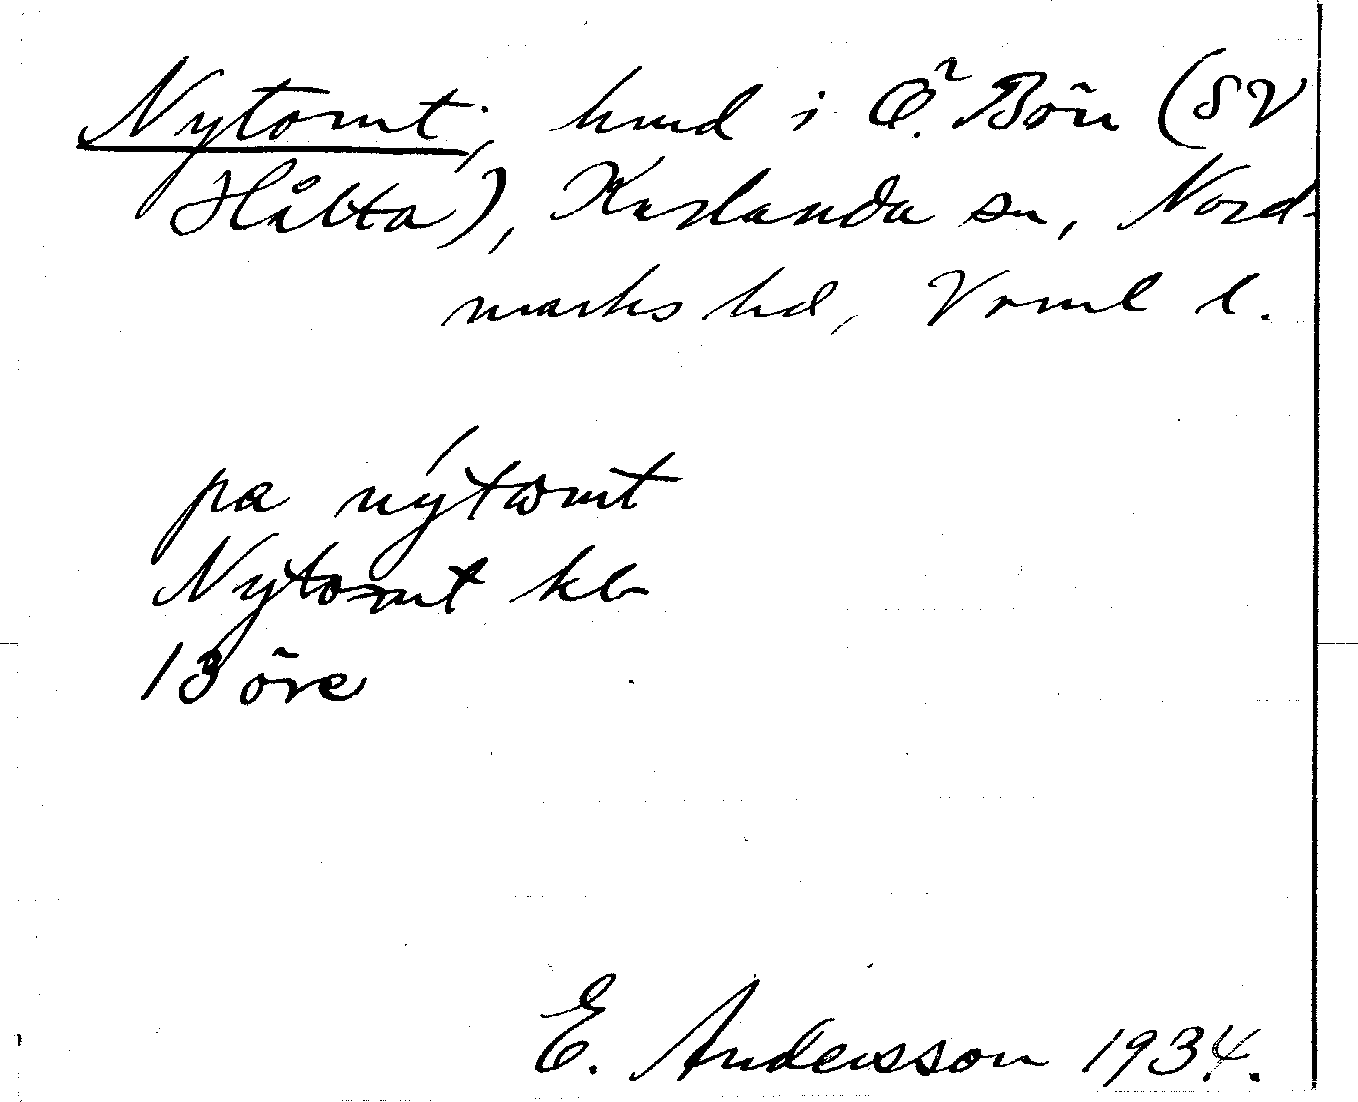 Nytomt, hmd i Ö. Bön (SV
Hålta), Karlanda sn, Nord-
marks hd, Vrml l.
pa nýtomt
Nytomt kb
13 öre
E. Andersson 1934.